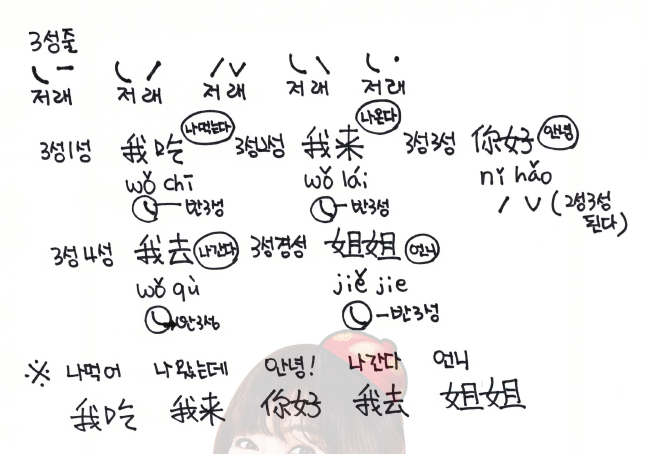 3성줄
저래 저래 저래 저래 저래
3성1성 我吃 나먹는다 3성2성 我来 나온다 3성3성 你好 안녕
wǒ chī wǒ lái nǐ hǎo
반3성 반3성 / ∨ (2성3성 된다)
3성4성 我去 나간다 3성경성 姐姐 언니
wǒ qù jiě jie
반3성 반3성
※ 나먹어 나왔는데 안녕! 나간다 언니
我吃 我来 你好 我去 姐姐